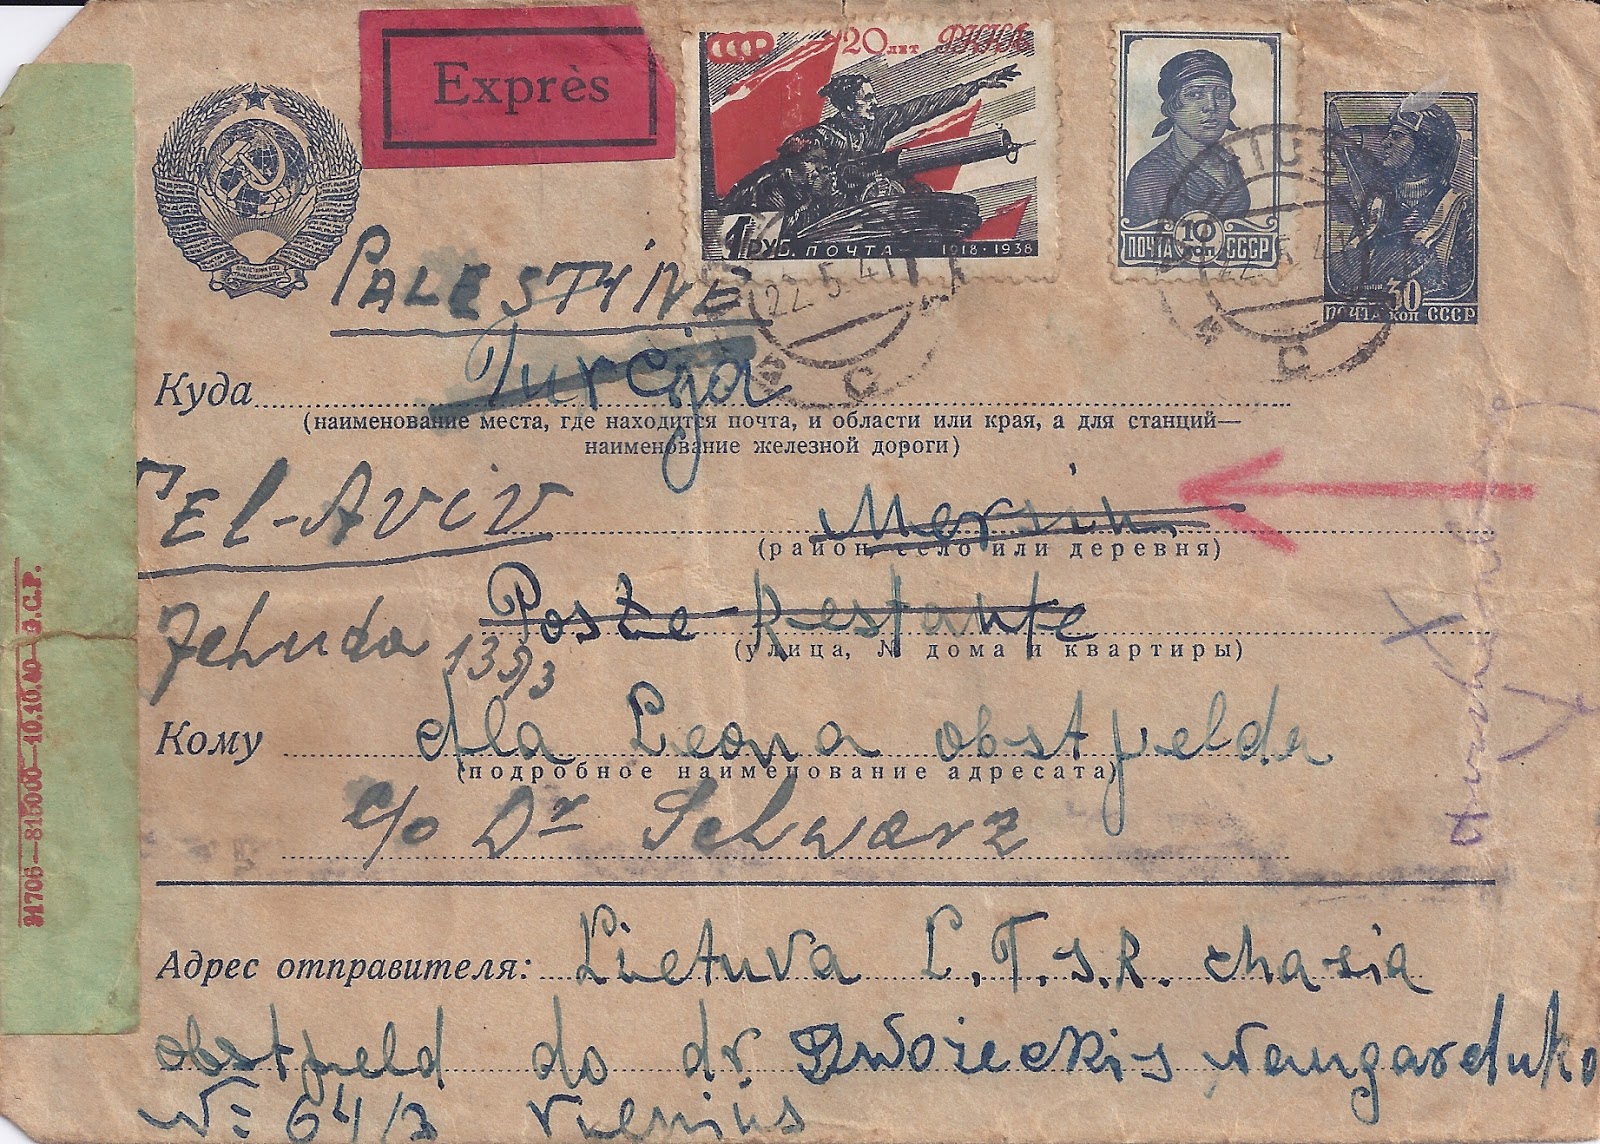 Exprès
СССР 20 лет РККА
1 РУБ. ПОЧТА 1918 · 1938
ПОЧТА 10 КОП. СССР
30
ПОЧТА КОП СССР
22.5.41
22.5.41
PALESTINE
Turcja
Куда
(наименование места, где находится почта, и области или края, а для станций—
наименование железной дороги)
TEl-AVIV
Mersin.
(район, село или деревня)
Jehuda
Poste-Restante
(улица, № дома и квартиры)
Кому dla Leona obstfelda
(подробное наименование адресата)
c/o Dr Schwarz
Адрес отправителя: Lietuva L.T.S.R. chasia
obstfeld do dr.
N: 64/3 Vilnius
31706—815000—10.10.40